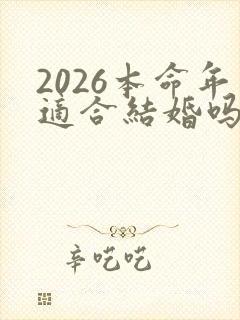 2026本命年
適合結婚吗
辛吃吃